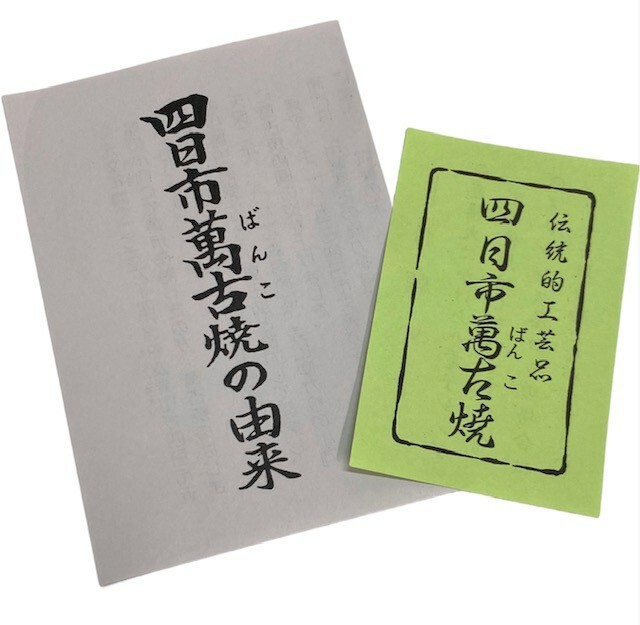 四日市萬古焼の由来
ばんこ
伝統的工芸品
四日市萬古焼
ばんこ